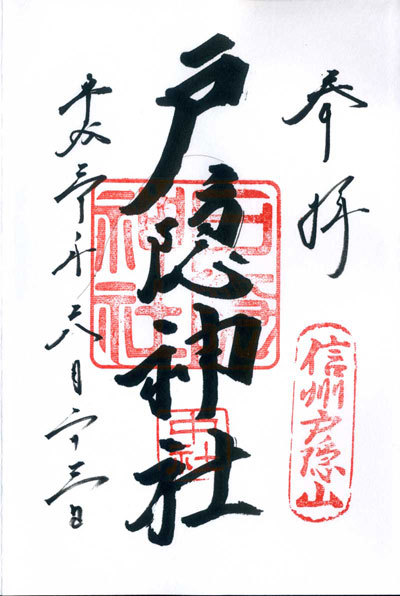 奉拝
信州戸隠山
戸隠神社
戸隠神社
中社
平成年六月二十三日